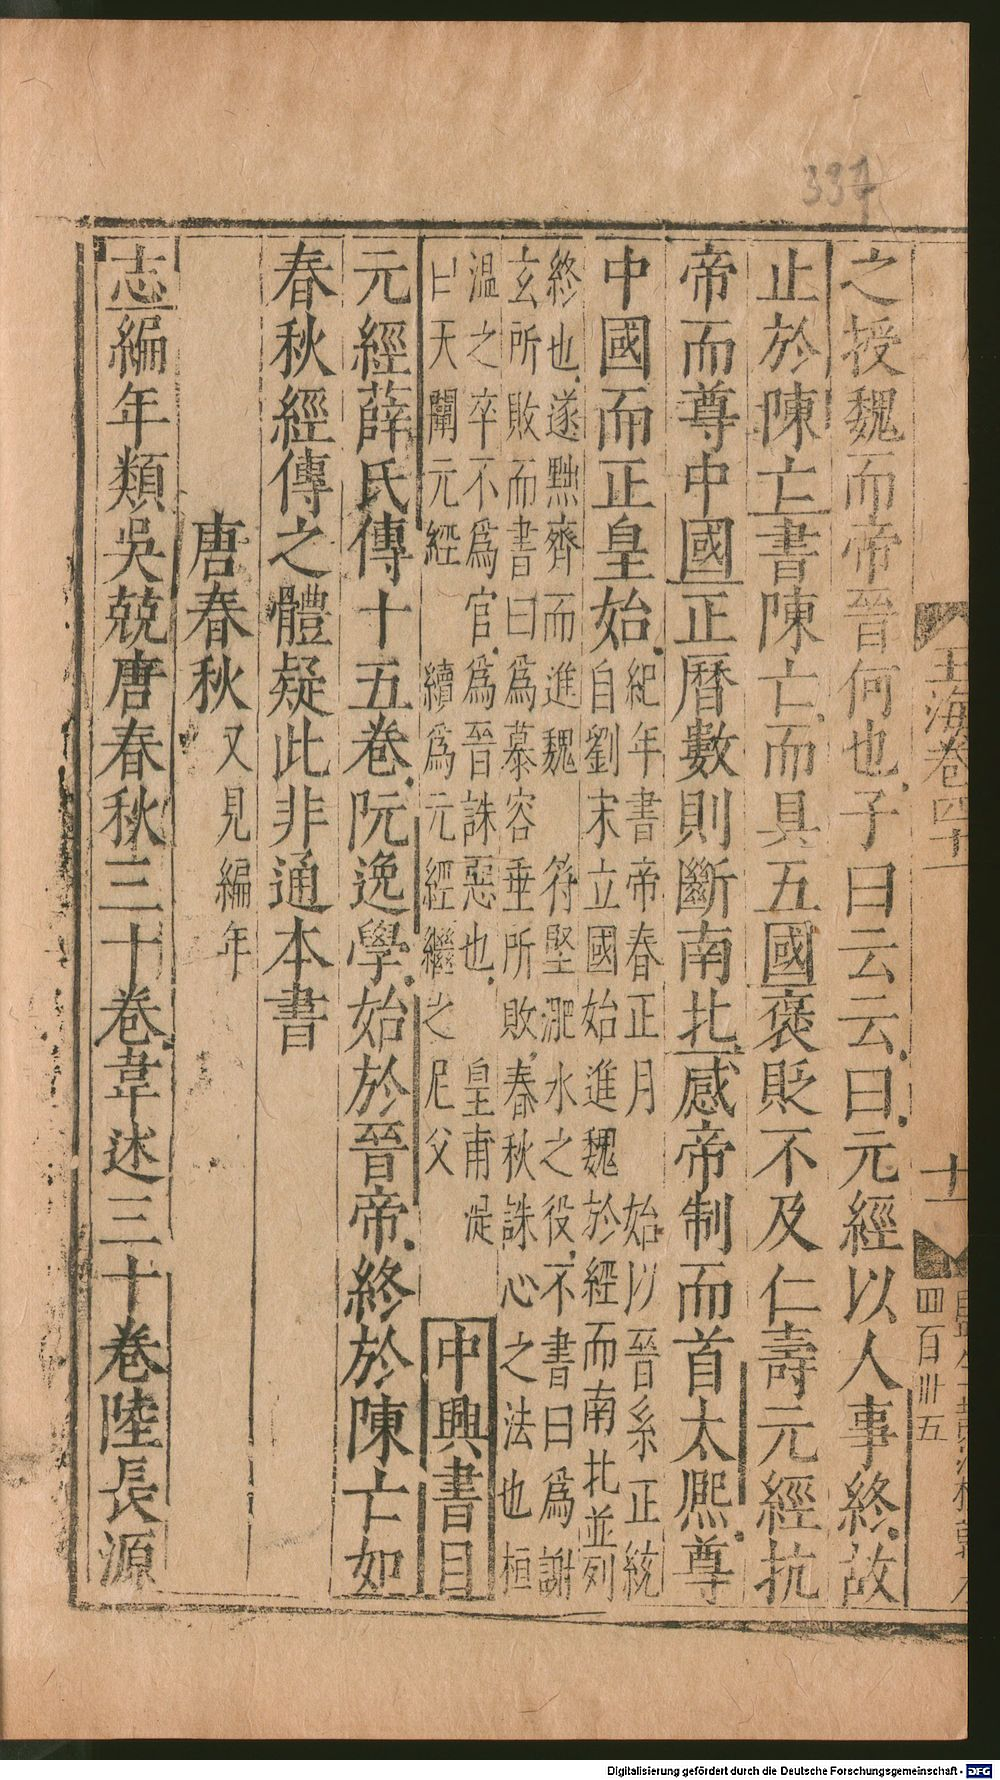 337
玉海卷四十一
十一
四百卅五
之授魏而帝晉何也子曰云云曰元經以人事終故
止於陳亡書陳亡而具五國褒貶不及仁壽元經抗
帝而尊中國正曆數則斷南北感帝制而首太熈尊
中國而正皇始
紀年書帝春正月 始以晉系正統
自劉宋立國始進魏於經而南北並列
終也遂黜齊而進魏 符堅淝水之役不書曰爲謝
玄所敗而書曰爲慕容垂所敗春秋誅心之法也桓
溫之卒不爲官爲晉誅惡也 皇甫湜
曰天闡元經 續爲元經繼之尼父
中興書目
元經薛氏傳十五卷阮逸學始於晉帝終於陳亡如
春秋經傳之體疑此非通本書
唐春秋又見編年
志編年類吳兢唐春秋三十卷韋述三十卷陸長源
Digitalisierung gefördert durch die Deutsche Forschungsgemeinschaft - DFG